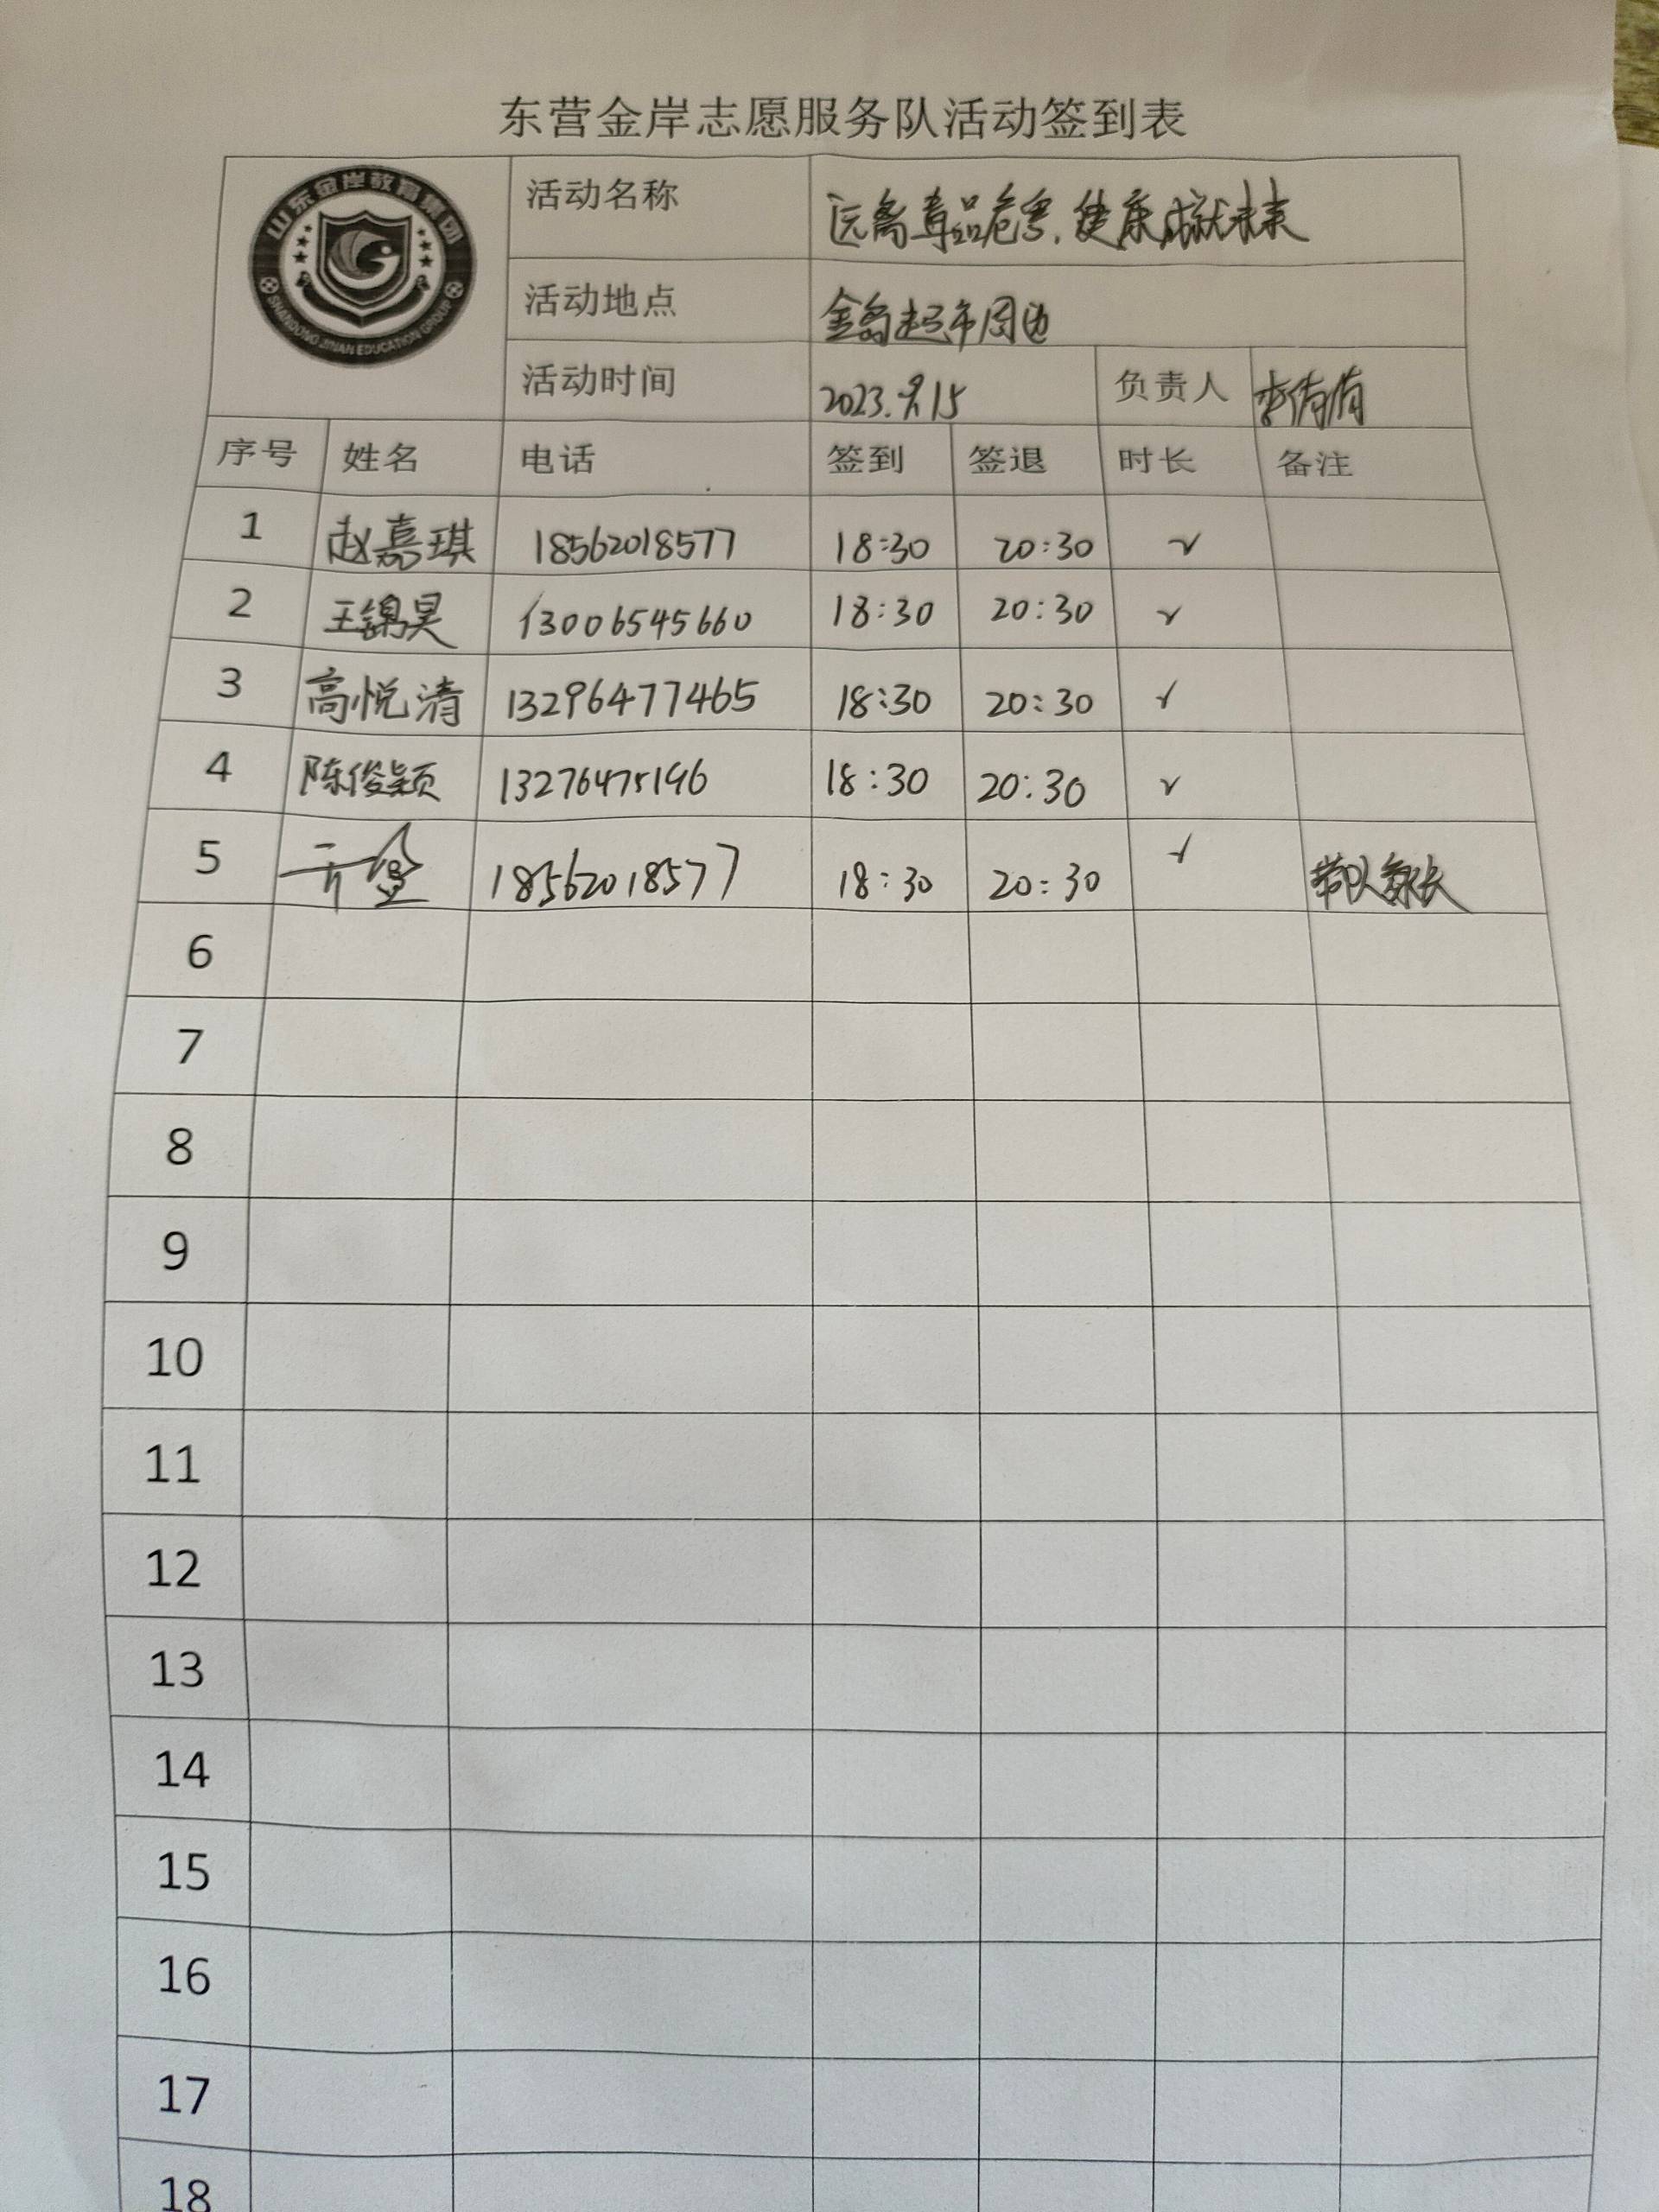 东营金岸志愿服务队活动签到表
山东金岸教育集团
SHANDONG JINAN EDUCATION GROUP
活动名称 远离毒品危害,健康成就未来
活动地点 金岛超市周边
活动时间 2023.9.15 负责人 李倩倩
序号 姓名 电话 签到 签退 时长 备注
1 赵嘉琪 18562018577 18:30 20:30 √
2 王锦昊 13006545660 18:30 20:30 √
3 高悦清 13296477465 18:30 20:30 √
4 陈俊颖 13276475196 18:30 20:30 √
5 18562018577 18:30 20:30 √ 带队家长
6
7
8
9
10
11
12
13
14
15
16
17
18